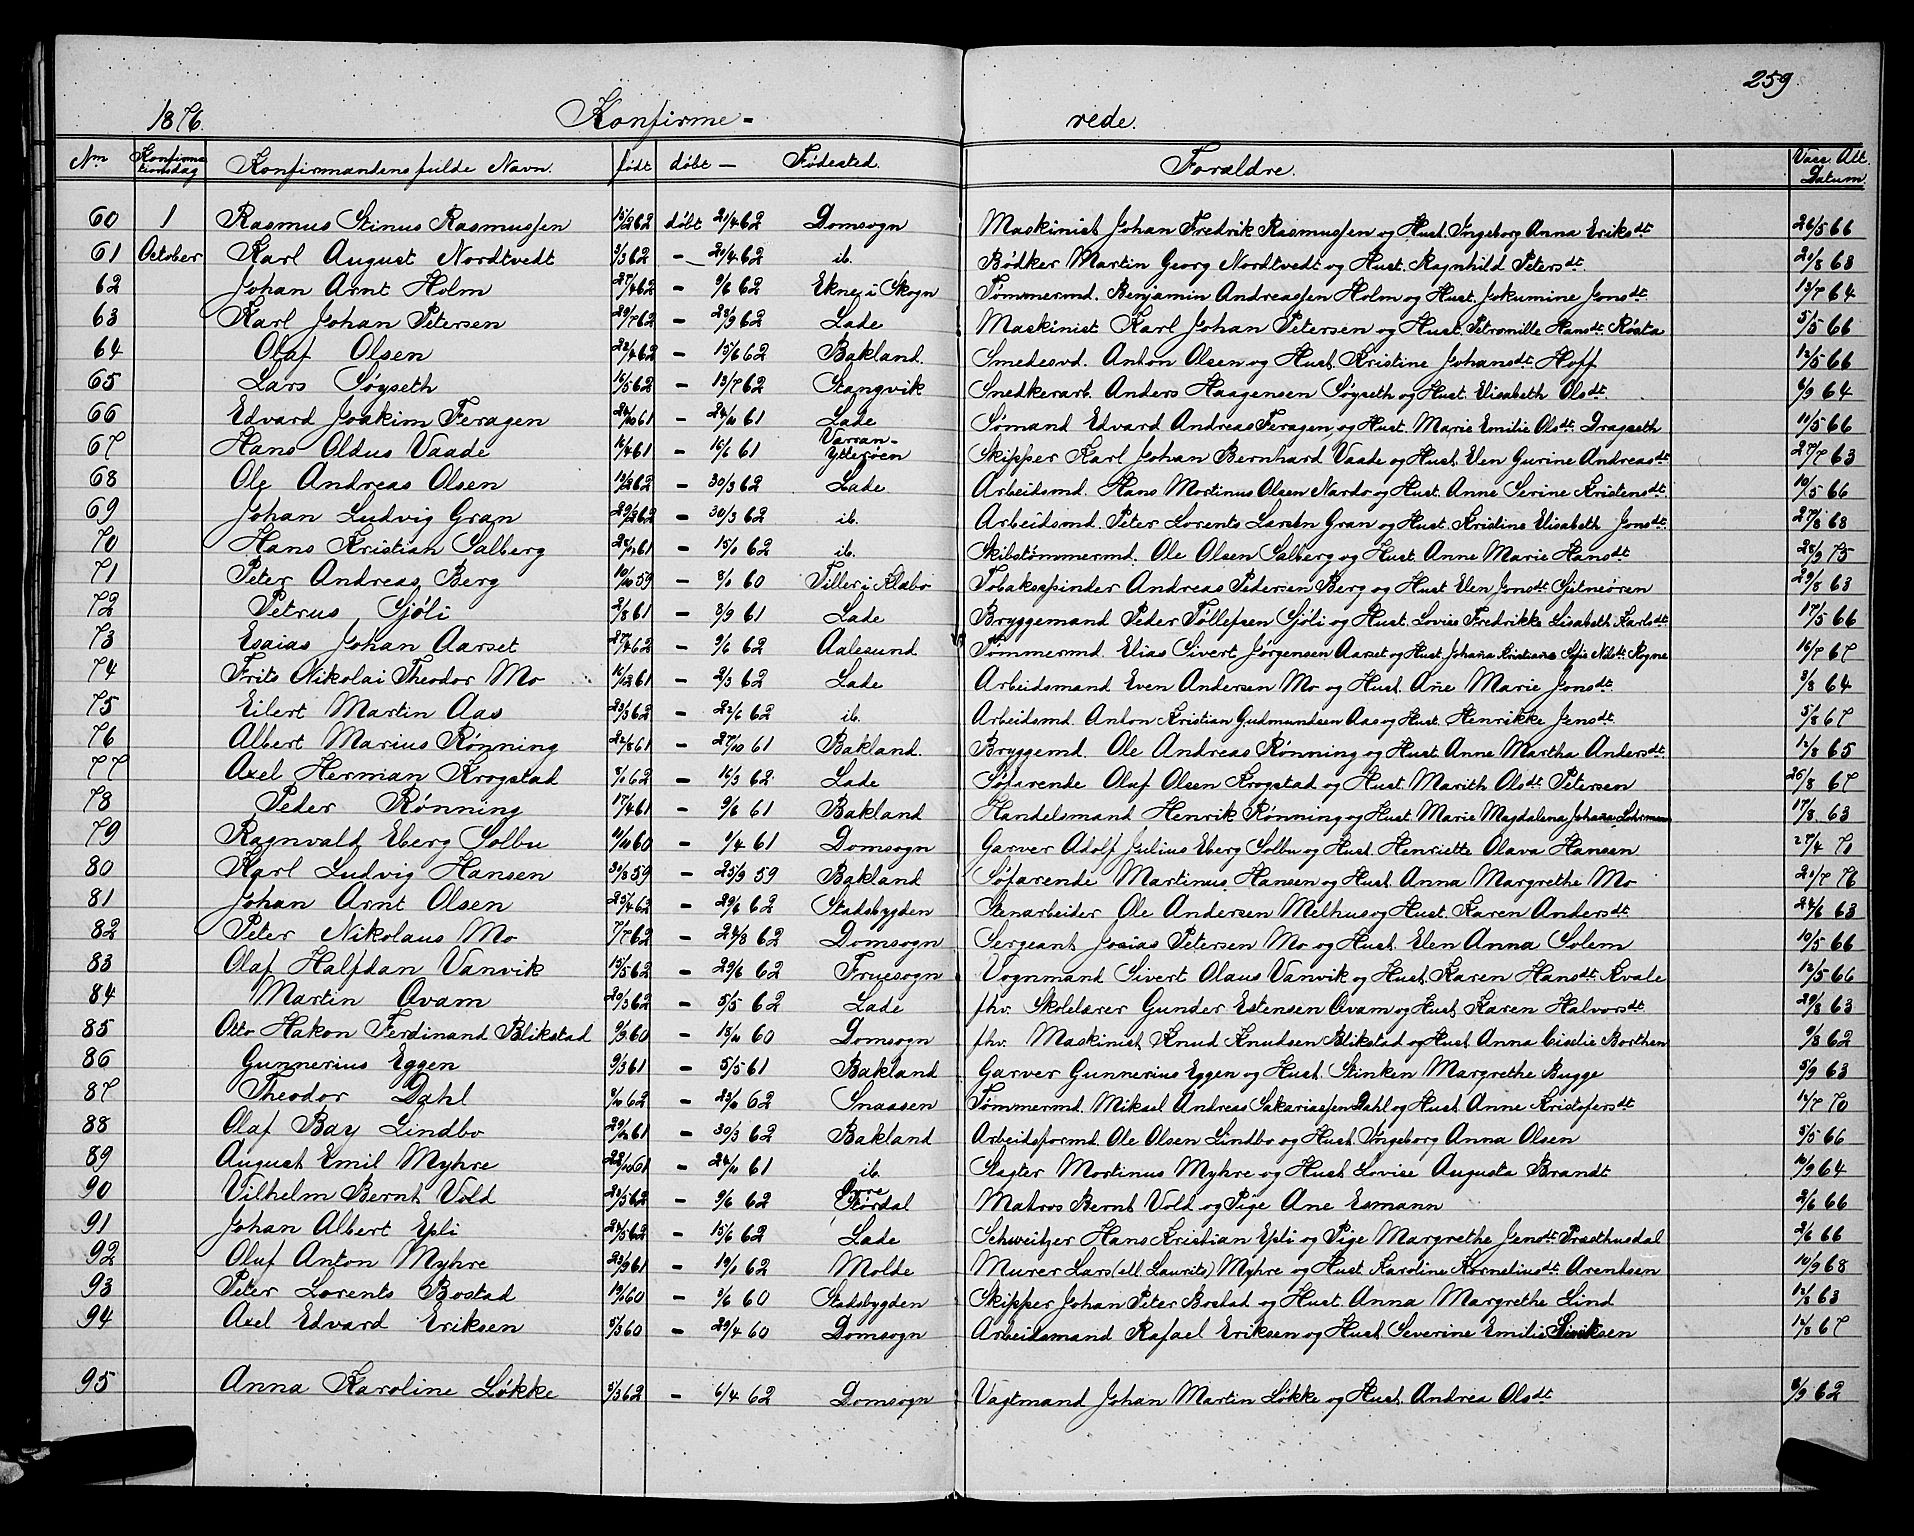 259
1876. Konfirme- rede.
Nm Konfirmationsdag Konfirmandens fulde Navn. født døbt — Fødested. Forældre. Vacc. Att. Datum
60 1 Rasmus Stinus Rasmussen 15/2 62 døbt 21/4 62 Domsogn Maskinist Johan Fredrik Rasmussen og Hust. Ingeborg Anna Eriksdt. 26/5 66
61 October Karl August Nordtvedt 3/3 62 - 21/4 62 ib. Bødker Martin Georg Nordtvedt og Hust. Ragnhild Petersdt. 20/8 68
62 Johan Arnt Holm 27/4 62 - 9/6 62 Ekne i Skogn Tømmermd. Benjamin Andreassen Holm og Hust. Jokumine Jonsdt. 13/7 64
63 Karl Johan Petersen 29/7 62 - 28/9 62 Lade Maskinist Karl Johan Petersen og Hust. Petronille Hansdt. Røsta 5/5 66
64 Olaf Olsen 22/4 62 - 15/6 62 Bakland. Smedesvd. Anton Olsen og Hust. Kristine Johansdt. Hoff 12/5 66
65 Lars Søyseth 16/5 62 - 13/7 62 Stangvik Snedkerarb. Anders Haagensen Søyseth og Hust. Elisabeth Olsdt. 6/9 64
66 Edvard Joakim Feragen 24/10 61 - 24/11 61 Lade Sømand Edvard Andreas Feragen og Hust. Marie Emilie Olsdt. Dragseth 11/5 66
67 Hans Oldus Vaade 16/4 61 - 16/6 61 Værran-Ytterøen Skipper Karl Johan Bernhard Vaade og Hust. Elen Gurine Andreasdt 27/7 63
68 Ole Andreas Olsen 10/2 62 - 30/3 62 Lade. Arbeidsmd. Hans Martinus Olsen Nardo og Hust. Anne Serine Kristensdt. 10/5 66
69 Johan Ludvig Gran 20/2 62 - 30/3 62 ib. Arbeidsmd. Peter Lorents Larsen Gran og Hust. Kristine Elisabeth Jonsdt. 27/8 68
70 Hans Kristian Salberg 22/11 61 - 15/1 62 ib. Skibstømmermd. Ole Olsen Salberg og Hust. Anne Marie Hansdt 28/9 75
71 Peter Andreas Berg 10/10 59 - 8/1 60 Tiller i Klæbo Tobaksspinder Andreas Pedersen Berg og Hust. Elen Jonsdt. Gjelmeøren 29/8 63
72 Petrus Gjøli 2/8 61 - 8/9 61 Lade Bryggemand Peder Tøllefsen Gjøli og Hust. Lovise Fredrikke Lisabeth Karlsdt. 17/5 66
73 Esaias Johan Aarset 27/4 62 - 9/6 62 Aalesund Tømmermd. Elias Sivert Jørgensen Aarset og Hust. Johana Kristiane Sofie Nilsdt. Rogne 16/7 67
74 Frits Nikolai Theodor Mo 16/12 61 - 2/3 62 Lade Arbeidsmand Even Andersen Mo og Hust. Ane Marie Jonsdt. 3/8 64
75 Eilert Martin Aas 23/3 62 - 22/6 62 ib. Arbeidsmd. Anton Kristian Gudmundsen Aas og Hust. Henrikke Jensdt. 5/8 67
76 Albert Marius Rønning 22/8 61 - 27/10 61 Bakland. Bryggemd. Ole Andreas Rønning og Hust. Anne Martha Andersdt. 12/8 65
77 Axel Herman Krogstad 8/1 62 - 16/3 62. Lade Søfarende Oluf Olsen Krogstad og Hust. Marith Olsdt. Petersen 26/8 67
78 Peder Rønning 17/4 61 - 9/6 61 Bakland Handelsmand Henrik Rønning og Hust. Marie Magdalena Johane Lohrmann 17/8 63
79 Ragnvald Eberg Solbu 11/10 60 - 1/4 61 Domsogn Garver Adolf Julius Eberg Solbu og Hust. Henriette Olava Hansen 27/4 71
80 Karl Ludvig Hansen 30/8 59 - 25/9 59 Bakland Søfarende Martinus Hansen og Hust. Anna Margrethe Mo 20/7 76
81 Johan Arnt Olsen 23/4 62 - 29/6 62 Stadsbygden Stenarbeider Ole Andersen Melhus og Hust. Karen Andersdt. 24/6 63
82 Peter Nikolaus Mo 7/7 62 - 24/8 62 Domsogn Sergeant Josias Petersen Mo og Hust. Elen Anna Solem 10/5 66
83 Olaf Halfdan Vanvik 15/5 62 - 29/6 62 Fruesogn Vognmand Sivert Olaus Vanvik og Hust. Karen Hansdt. Kvale 12/5 66
84 Martin Qvam 20/3 62 - 5/5 62 Lade fhv. Skolelærer Gunder Estensen Qvam og Hust. Karen Halvorsdt. 29/8 63
85 Otto Hakon Ferdinand Blikstad 9/9 60 - 18/11 60 Domsogn fhv. Maskinist Knud Knudsen Blikstad og Hust. Anna Cicelie Borthen 9/8 62
86 Gunnerius Eggen 9/3 61 - 5/5 61 Bakland Garver Gunnerius Eggen og Hust. Stinken Margrethe Bugge 5/9 63
87 Theodor Dahl 9/10 62 - 23/11 62 Snaasen Tømmermd. Mikael Andreas Sakariassen Dahl og Hust. Anne Kristofersdt 14/7 70
88 Olaf Bay Lindbo 29/12 61 - 30/3 62 Bakland Arbeidsformd. Ole Olsen Lindbo og Hust. Ingeborg Anna Olsen 5/5 66
89 August Emil Myhre 22/10 61 - 24/11 61 ib. Slagter Martinus Myhre og Hust. Lovise Augusta Brandt 10/9 64
90 Vilhelm Bernt Vold 20/5 62 - 9/6 62 Øvre Størdal Matros Bernt Vold og Pige Ane Esmann 2/6 66
91 Johan Albert Epli 24/5 62 - 15/6 62 Lade Schweitzer Hans Kristian Epli og Pige Margrethe Jensdt. Præsthusdal 2/6 66
92 Oluf Anton Myhre 23/9 61 - 19/1 62 Molde Murer Lars (ell. Laurits) Myhre og Hust. Karoline Korneliusdt. Arentsen 10/9 68
93 Peter Lorents Bostad 19/1 60 - 3/6 60 Stadsbygden Skipper Johan Peter Bostad og Hust. Anna Margrethe Lind 12/8 63
94 Axel Edvard Eriksen 5/3 60 - 29/4 60 Domsogn Arbeidsmand Rafael Eriksen og Hust. Severine Emilie 12/8 67
95 Anna Karoline Løkke 5/3 62 - 6/4 62 Domsogn Vagtmand Johan Martin Løkke og Hust. Andrea Olsdt 8/9 62